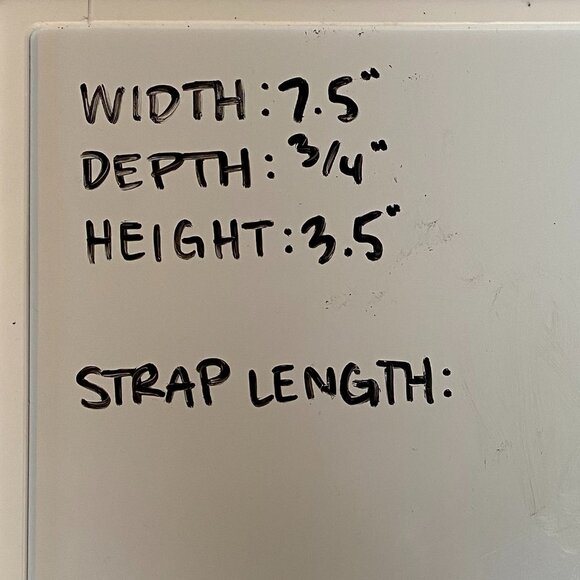 WIDTH: 7.5"
DEPTH: 3/4"
HEIGHT: 3.5"
STRAP LENGTH: